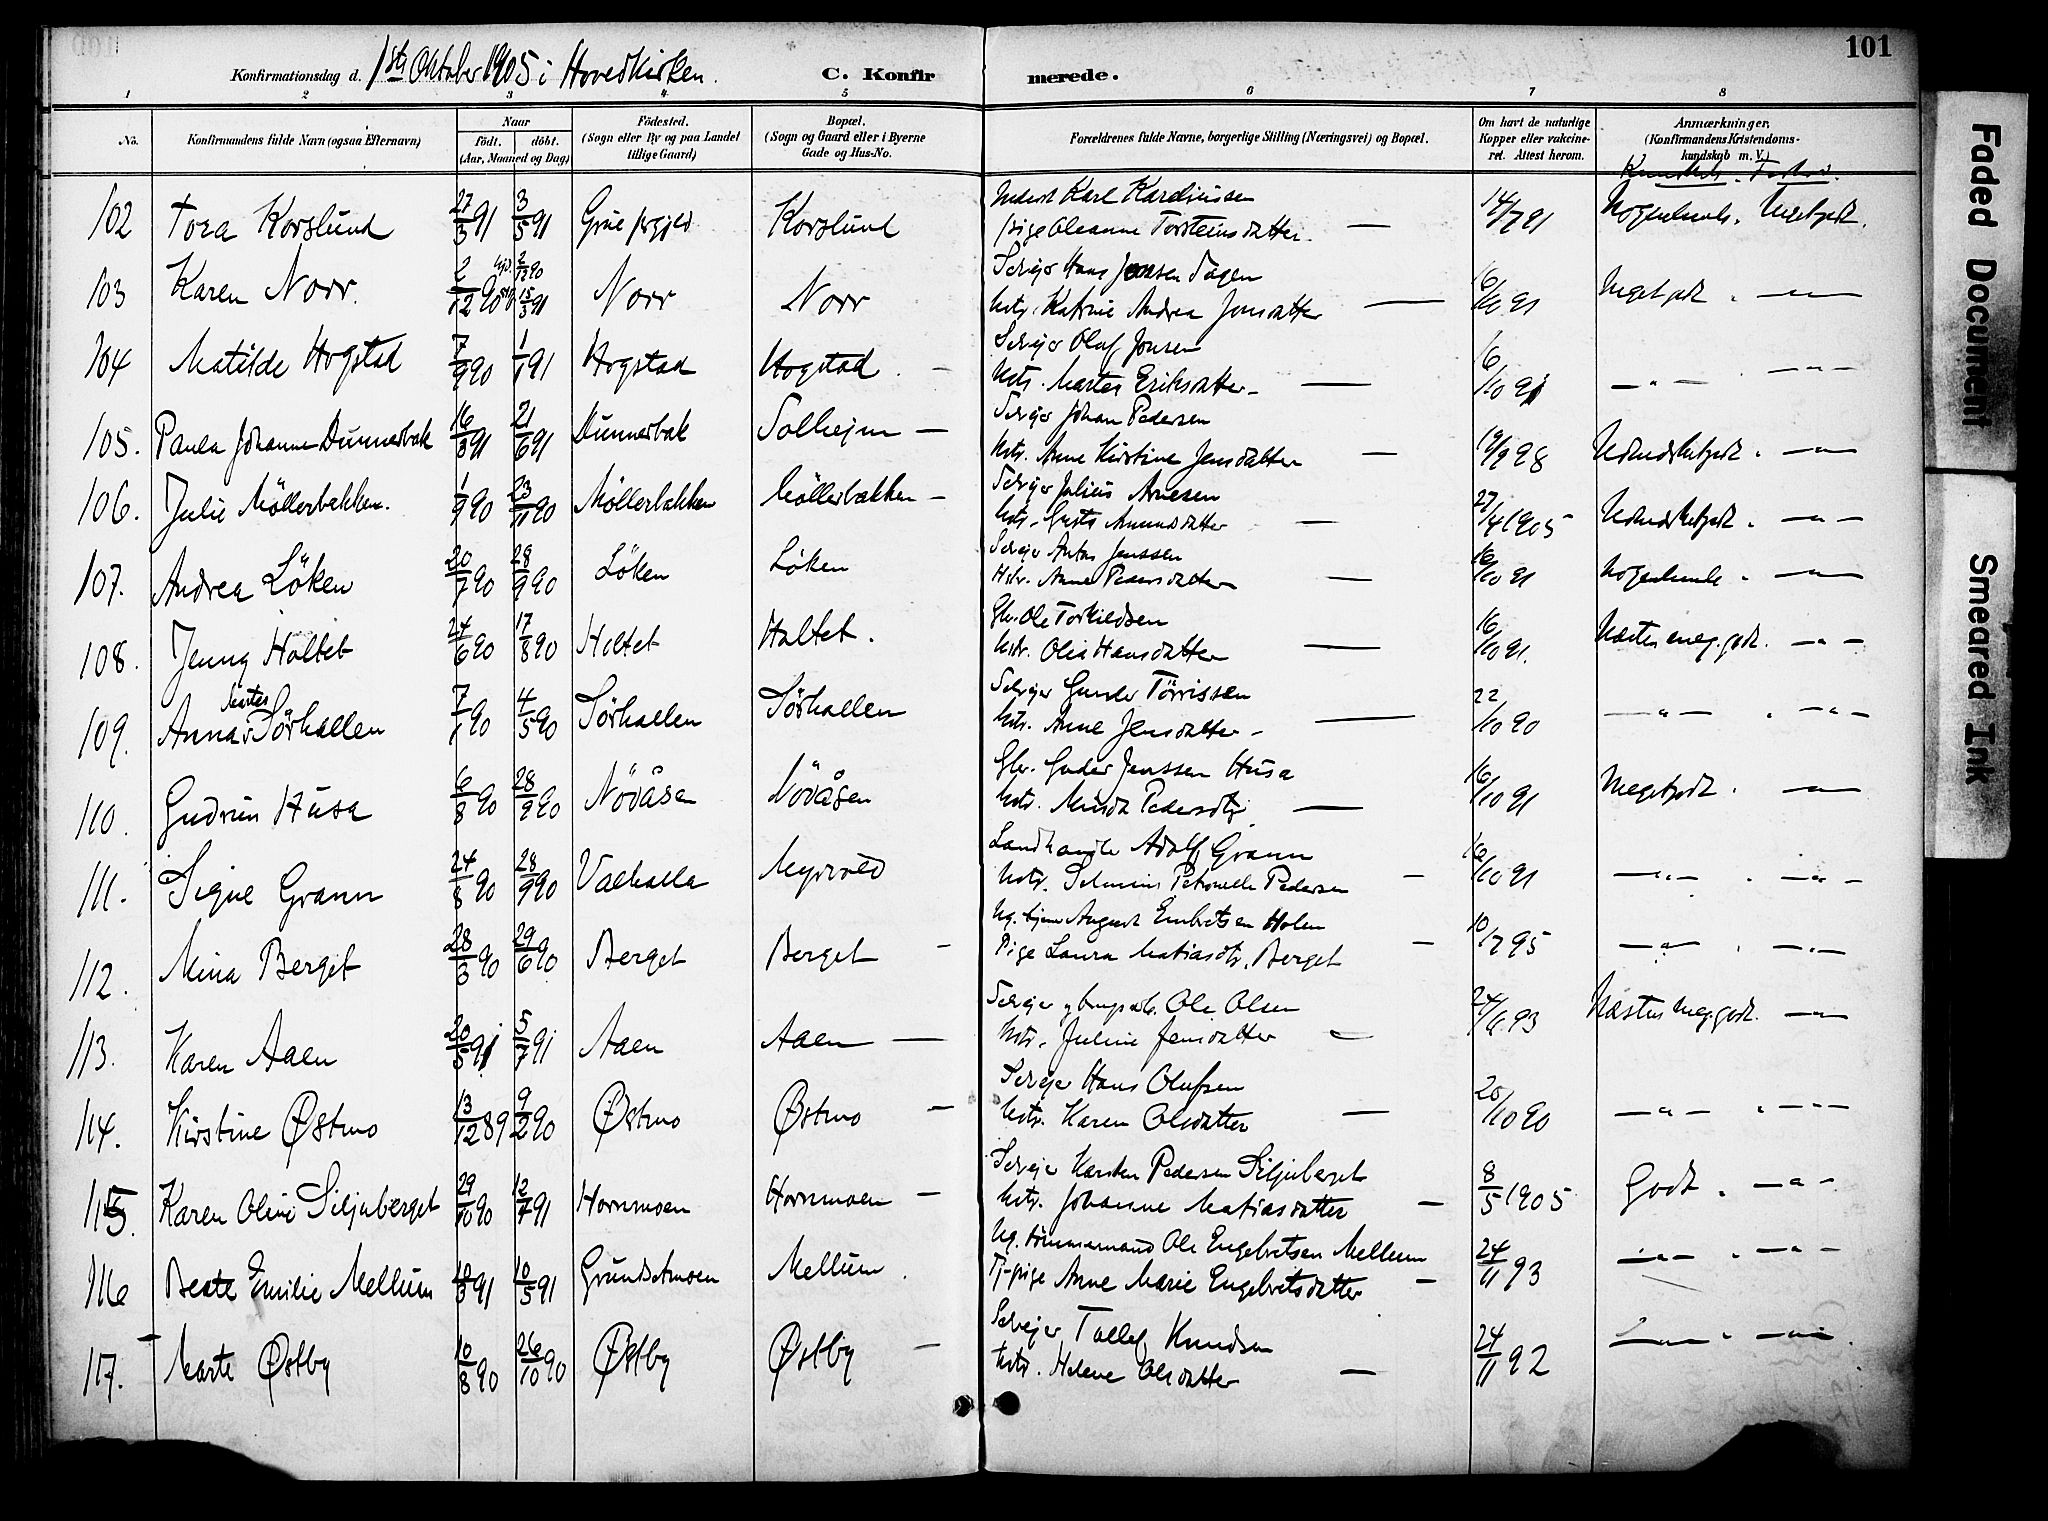 101
Konfirmationsdag d. 1ste Oktober 1905 i Hovedkirken. C. Konfirmerede.
1 2 3 4 5 6 7 8
No. Konfirmandens fulde Navn (ogsaa Efternavn) Naar født. døbt. (Aar, Maaned og Dag) Födested. (Sogn eller By og paa Landet tillige Gaard) Bopæl. (Sogn og Gaard eller i Byerne Gade og Hus-No. Forældrenes fulde Navne, borgerlige Stilling (Næringsvei) og Bopæl. Om havt de naturlige Kopper eller vakcineret. Attest herom. Anmærkninger, (Konfirmandens Kristendomskundskab m. V.)
102 Tora Korslund 27/3 91 3/5 91 Grue Korslund Karl Karelinssen 14/7 91 Meget godt.
pige Oleanne Torstensdatter —
103 Karen Norr. 2/12 90 2/12 90 15/3 91 Norr Norr Selvejer Hans Jensen Tagen 16/10 91 Meget godt „ — „ —
Hstr. Katrine Andrea Jonsdatter —
104 Matilde Hogstad 7/9 90 1/1 91 Hogstad Hogstad. Selvejer Oluf Jonsen 16/10 91 — „ — „ — „ —
Hstr. Marte Eriksdatter —
105. Paula Johanne Dunnerbak 16/3 91 21/6 91 Dunnerbak Solhejm — Selvejer Johan Pedersen 19/9 98 Udmerket godt „ — „ —
Hstr. Anne Kirstine Jensdatter —
106. Julie Möllerbakken. 1/9 90 23/11 90 Möllerbakken Möllerbakken — Selvejer Julius Arnesen 27/4 1905 Udmerket godt „ — „ —
Hstr. Amundsdatter —
107. Andrea Löken 20/7 90 28/9 90 Löken Løken Selvejer Anton Jenssen 16/10 91 „ — „ —
Hstr. Anne Pedersdatter —
108. Jenny Holtet 24/6 90 17/8 90 Holtet Holtet. Gbr. Ole Torkildsen 16/10 91. Næsten meg. godt. — „ —
Hstr. Olia Hansdatter —
109. Anna Marte Sörhallen 7/1 90 4/5 90 Sörhallen Sörhallen Selvejer Gunder Törrissen 22/10 90 — „ — „ — „ —
Hstr. Anne Jensdatter —
110. Gudrun Husa 6/8 90 28/9 90 Növåsen Növåsen Gbr. Guder Jenssen Husa 16/10 91 Meget godt. — „ —
Hstr. Pedersdtr. —
111. Signe Grann 24/8 90 28/9 90 Valhalla Myrvold Landhandler Adolf Grann 16/10 91 — „ — „ — „ —
Hstr. Petronelle Pedersen —
112. Mina Berget 28/3 90 29/6 90 Berget Berget — Ug. August Embretsen Holen 10/7 95 — „ — „ — „ —
Pige Laura Matiasdtr. Berget —
113. Karen Aaen 20/5 91 5/7 91 Aaen Aaen — Selvejer Ole Olsen 24/6 93 Næsten meg. godt. — „ —
Hstr. Juline Jensdatter —
114. Kirstine Østmo 13/12 89 9/2 90 Østmo Østmo — Selvejer Hans Olufsen 20/10 90 — „ — „ — „ —
Hstr. Karen Olsdatter —
115. Karen Oline Siljuberget 29/10 90 12/7 91 Hornmoen Hornmoen — Selvejer Karsten Pedersen Siljuberget 8/5 1905 Godt „ — „ —
Hstr. Johanne Matiasdatter —
116 Beate Emilie Mellum 18/3 91 10/5 91 Grundsetmoen Mellum. Ug. tömmermand Ole Engebretsen Mellum 24/11 93 — „ — „ — „ —
Tj-pige Anne Marie Engebretsdatter —
117. Marte Østby 10/8 90 26/10 90 Østby Østby — Selvejer Tollef Knudsen 24/11 92 — „ — „ — „ —
Hstr. Helene Olsdatter —
Faded Document
Smeared Ink